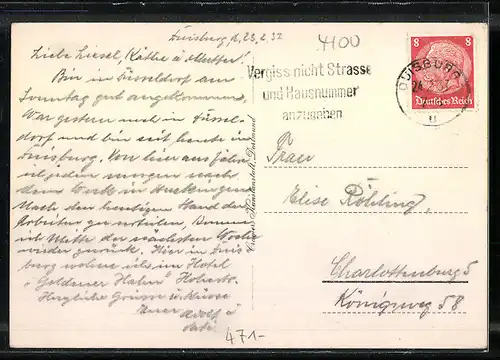 Duisburg, d. 23.2.37
Liebe Liesel, Käthe u. Mutter!
Bin in Düsseldorf am
Sonntag gut angekommen,
War gestern noch in Düssel-
dorf und bin seit heute in
Duisburg. Von hier aus fahre
ich jeden morgen nach
dem Werk in Huckingen.
Nach dem heutigen Stand der
Arbeiten zu urteilen, komme
ich Mitte der nächsten Woche
wieder zurück. Hier in Duis
burg wohne ich im Hotel
"Goldener Hahn" Hohestr.
Herzliche Grüsse u. Küsse
Euer Adolf u
471-
4100
Vergiss nicht Strasse
und Hausnummer
anzugeben
DUISBURG
8 8
Deutsches Reich
Dortmund
Frau
Elise Röhling,
Charlottenburg 5
Königsweg 58